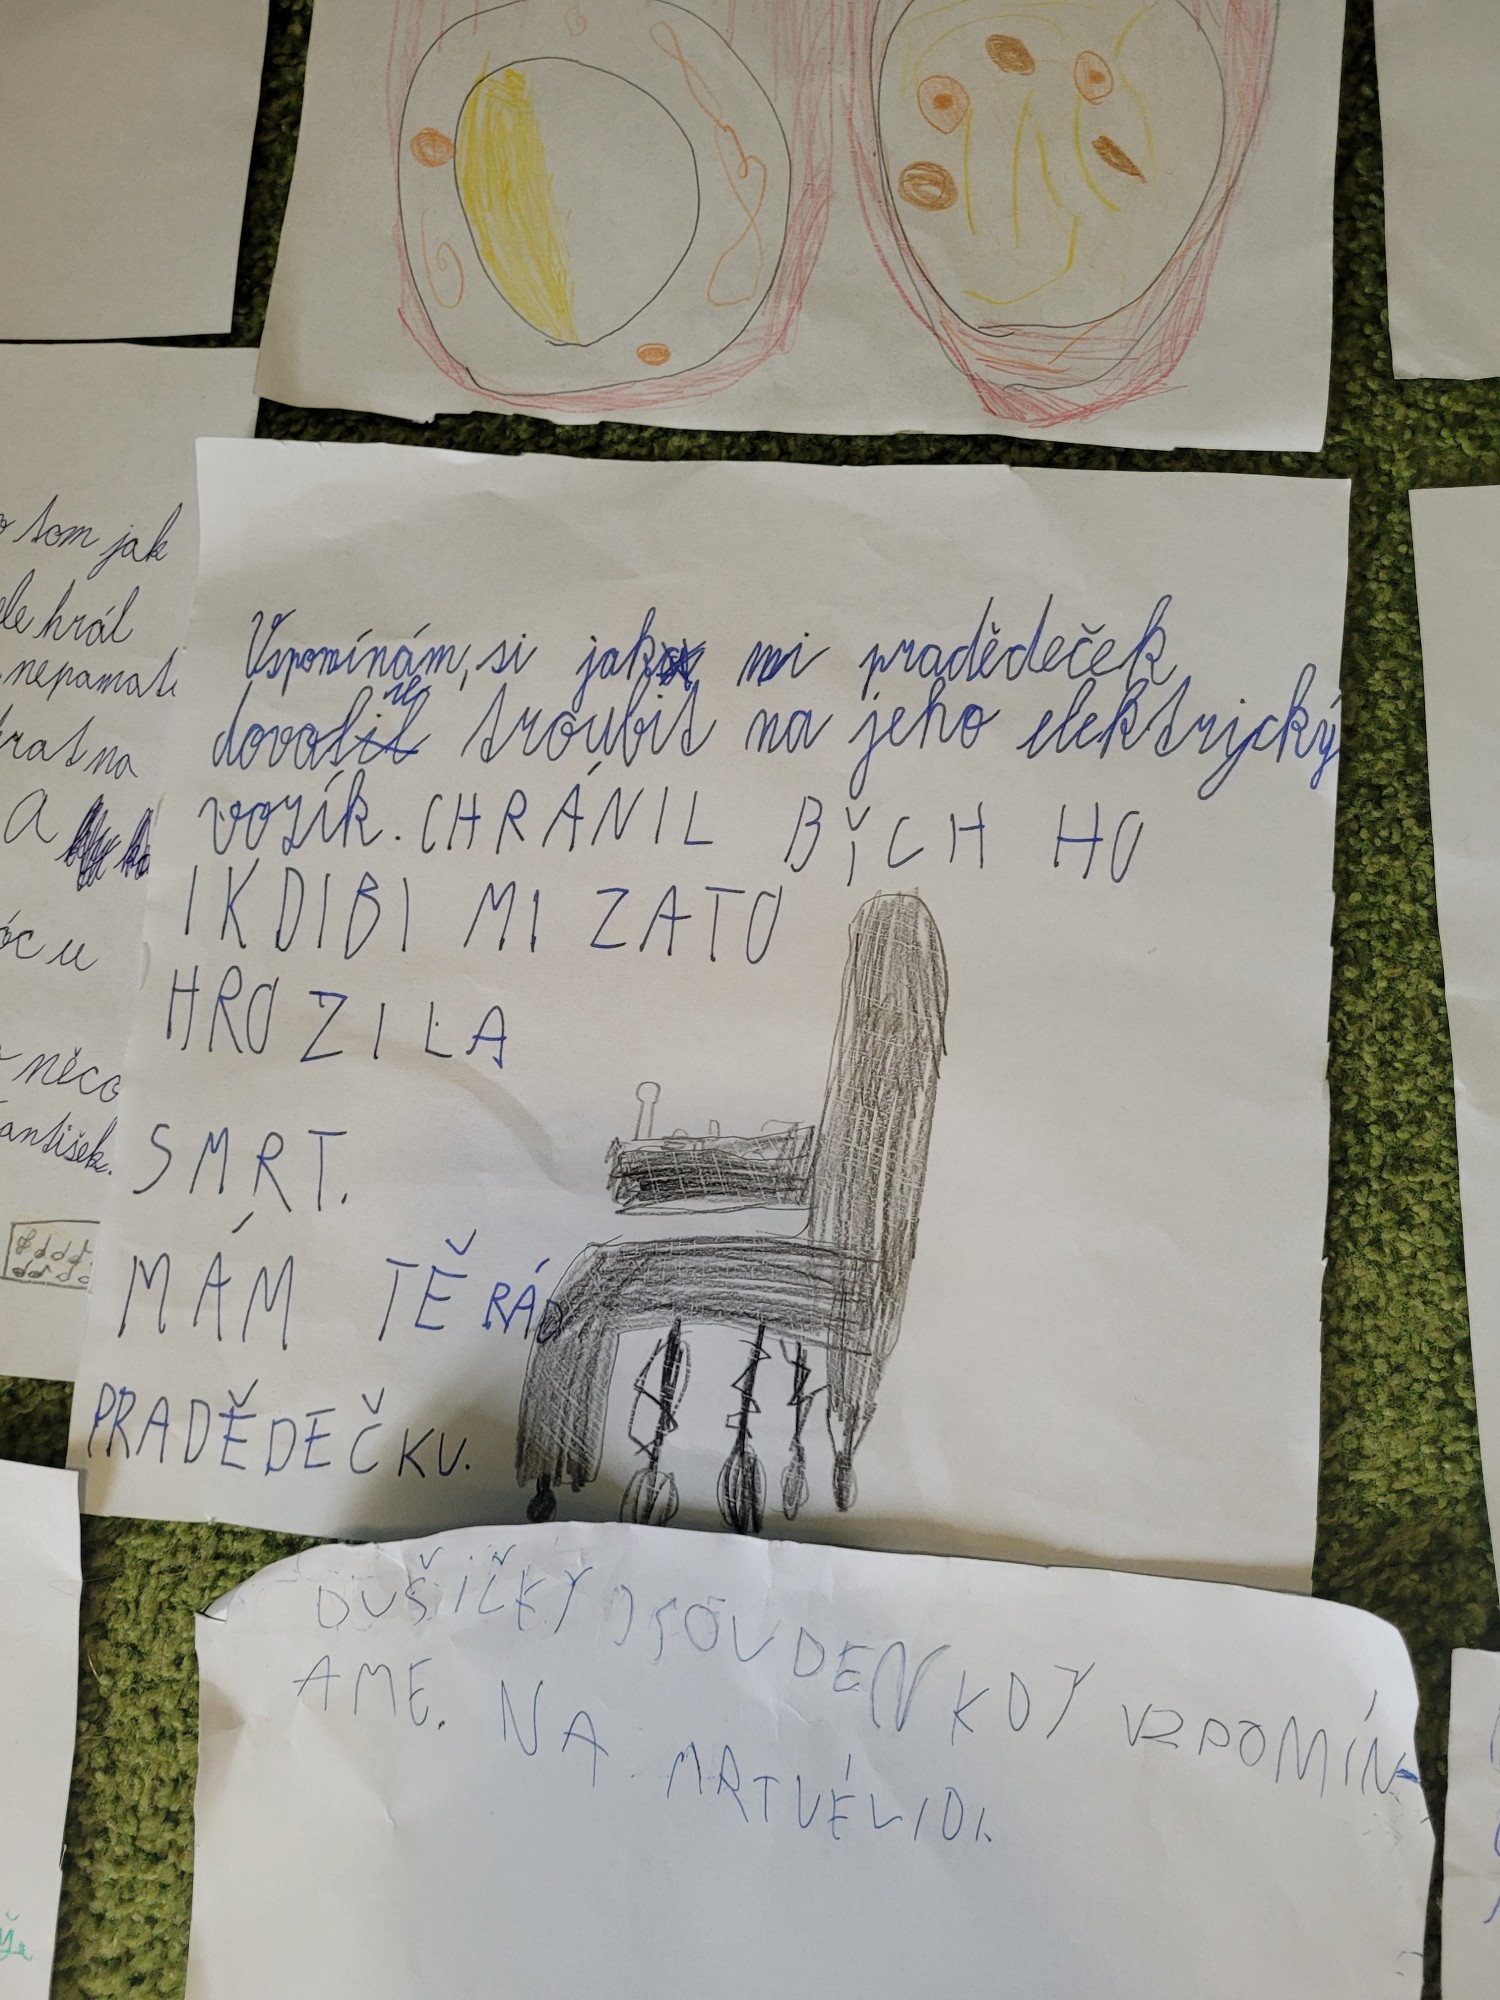 tom jak
hrál
nepamat
hrat na
A
něco
František.
Vzpomínám, si jak mi pradědeček
dovolil troubit na jeho elektrycký
vozík. CHRÁNIL BYCH HO
I KDIBI MI ZATO
HROZILA
SMRT.
MÁM TĚ RÁD
PRADĚDEČKU.
DUŠIČKY JSOU DEN KDY VZPOMÍN-
AME. NA MRTVÉ LIDI.